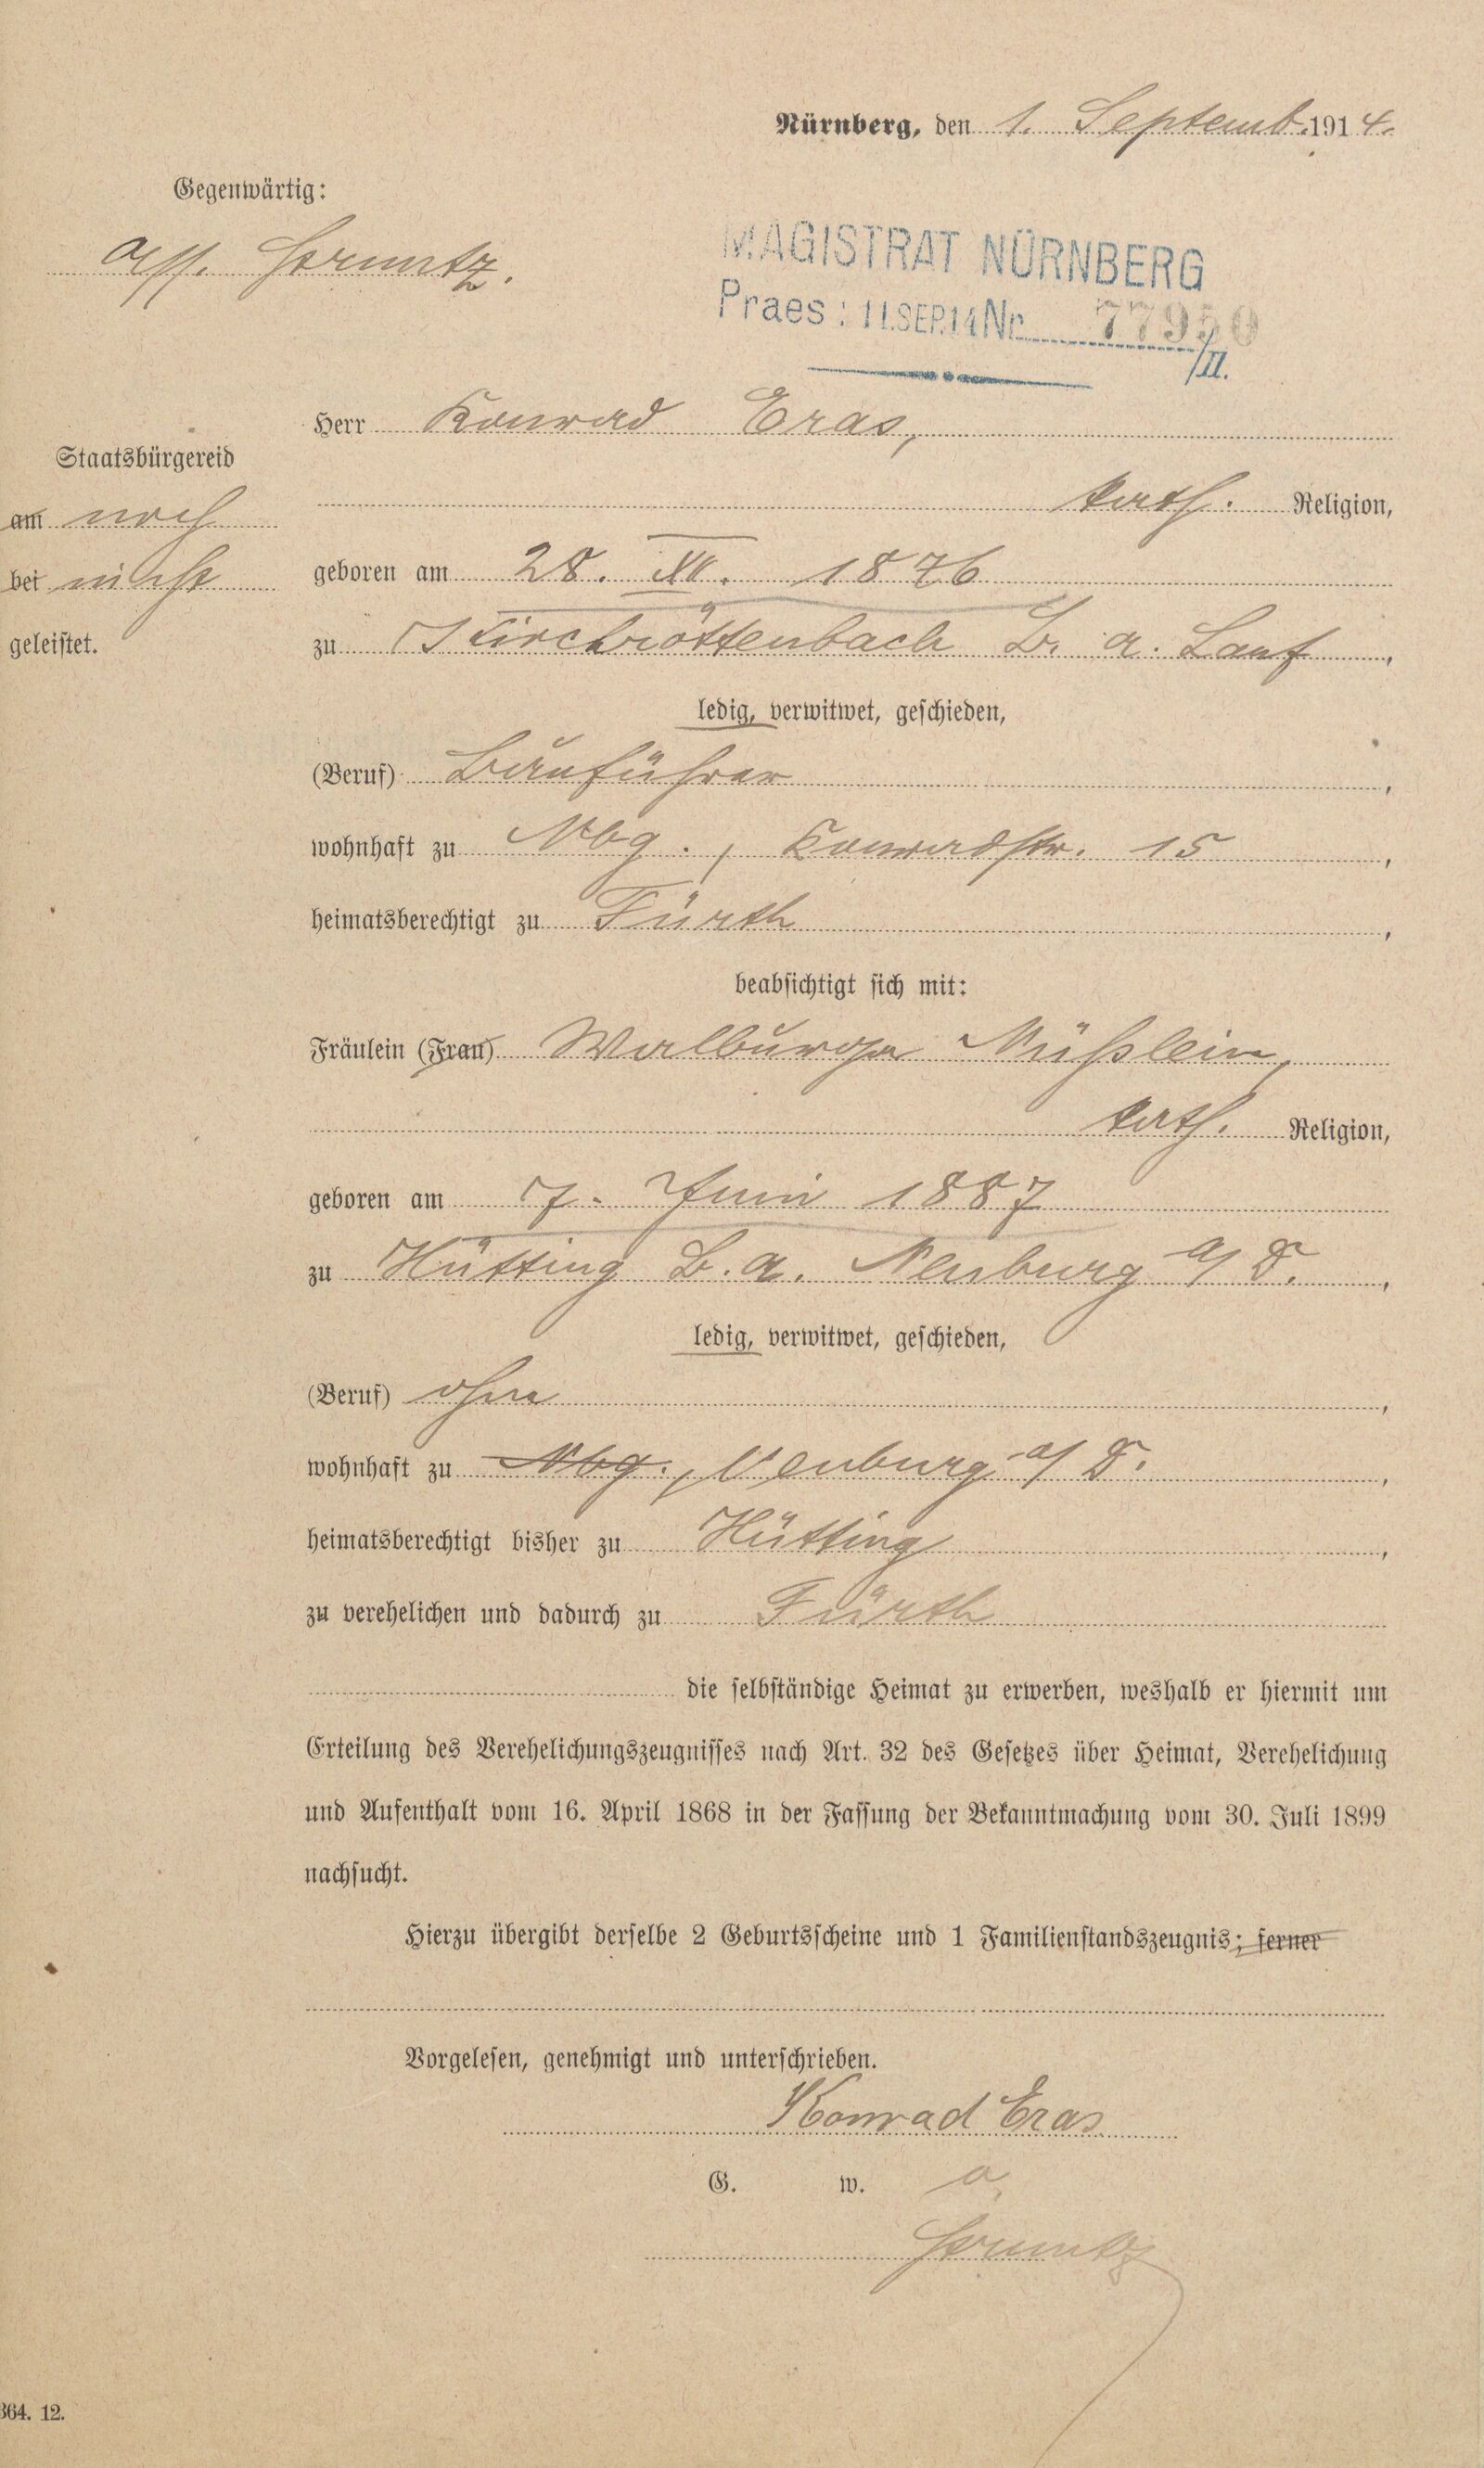 Nürnberg, den 1. Septemb. 1914.
Gegenwärtig:
Ass.
MAGISTRAT NÜRNBERG
Praes: 11.SEP.14 Nr. 77950
/II.
Herr Konrad Eras,
Staatsbürgereid
kath. Religion,
am noch
geboren am 28. XI. 1876
bei nicht
zu Kirchröttenbach B. A. Lauf,
geleistet.
ledig, verwitwet, geschieden,
(Beruf) Bauführer,
wohnhaft zu Nbg., Konradstr. 15,
heimatsberechtigt zu Fürth,
beabsichtigt sich mit:
Fräulein (Frau) Walburga Nüßlein,
kath. Religion,
geboren am 7. Juni 1887
zu Hütting B. A. Neuburg a/D.,
ledig, verwitwet, geschieden,
(Beruf) ohne,
wohnhaft zu Nbg., Neuburg a/D.,
heimatsberechtigt bisher zu Hütting,
zu verehelichen und dadurch zu Fürth
die selbständige Heimat zu erwerben, weshalb er hiermit um
Erteilung des Verehelichungszeugnisses nach Art. 32 des Gesetzes über Heimat, Verehelichung
und Aufenthalt vom 16. April 1868 in der Fassung der Bekanntmachung vom 30. Juli 1899
nachsucht.
Hierzu übergibt derselbe 2 Geburtsscheine und 1 Familienstandszeugnis; ferner
Vorgelesen, genehmigt und unterschrieben.
Konrad Eras
G. w. o.
364. 12.